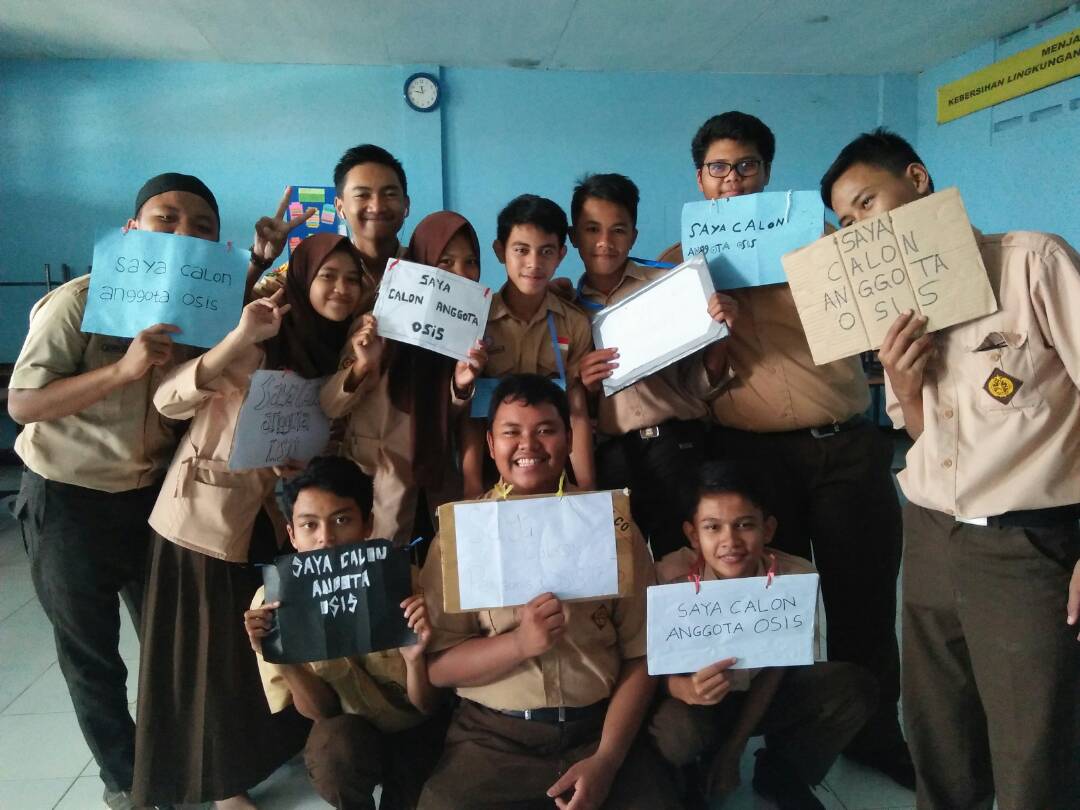 MENJA
KEBERSIHAN LINGKUNGAN
saya calon
anggota osis
SAYA
CALON ANGGOTA
OSIS
SAYA CALON
ANGGOTA OSIS
SAYA
CALON
ANGGOTA
OSIS
anggota
OSIS
SAYA CALON
ANGGOTA
OSIS
CO
SAYA CALON
ANGGOTA OSIS